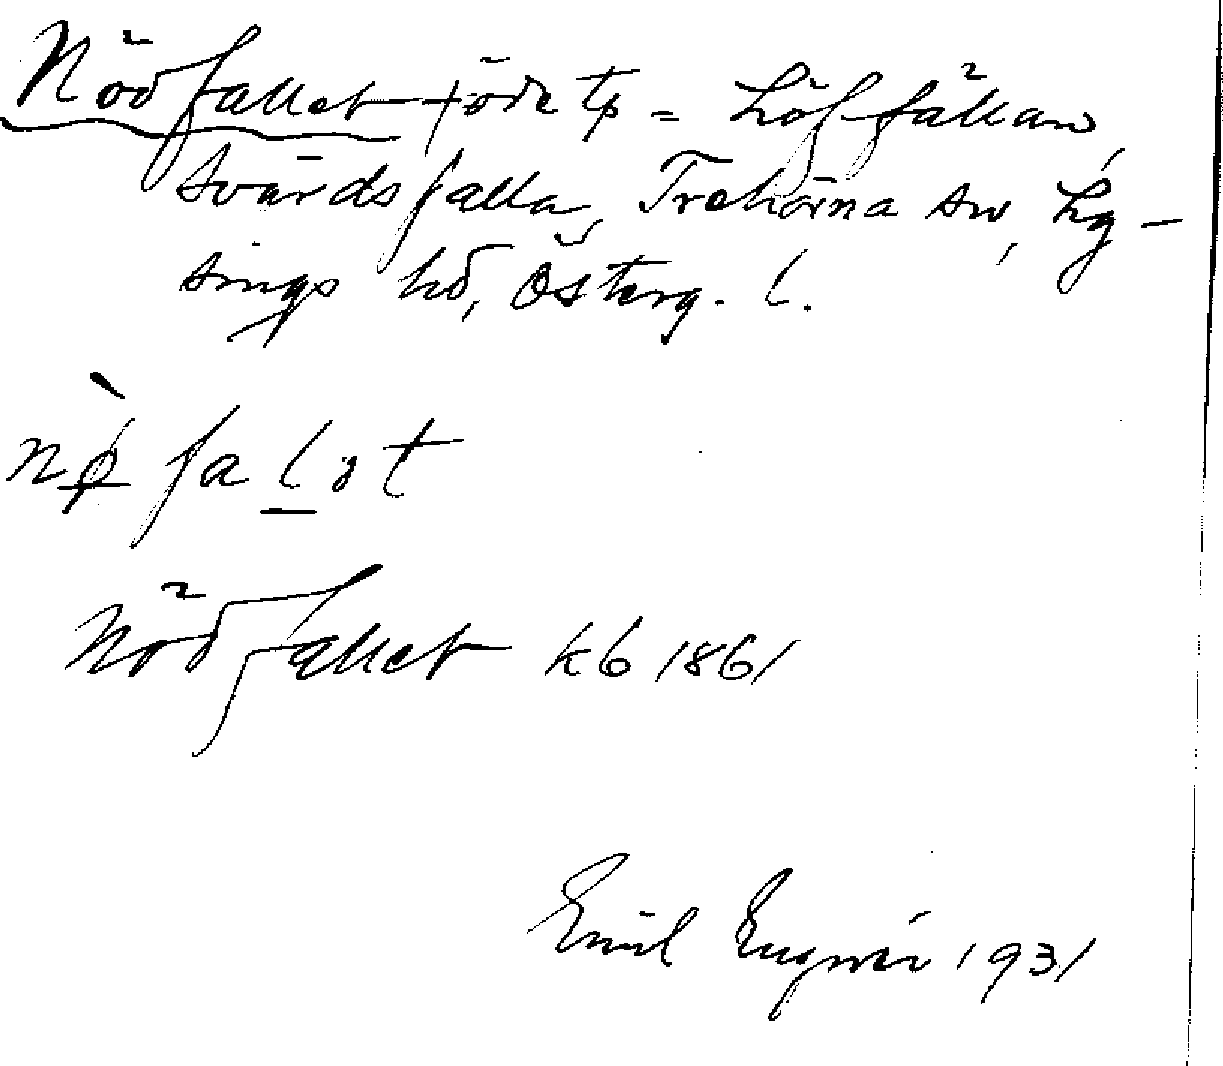 Nödfallet föde tp = Löffällan,
Svärdsfalla, Trehörna sn, Gö-
stings hd, Österg. l.
nø̀ falət
Nödfallet kb 1861
Emil Engnér 1931